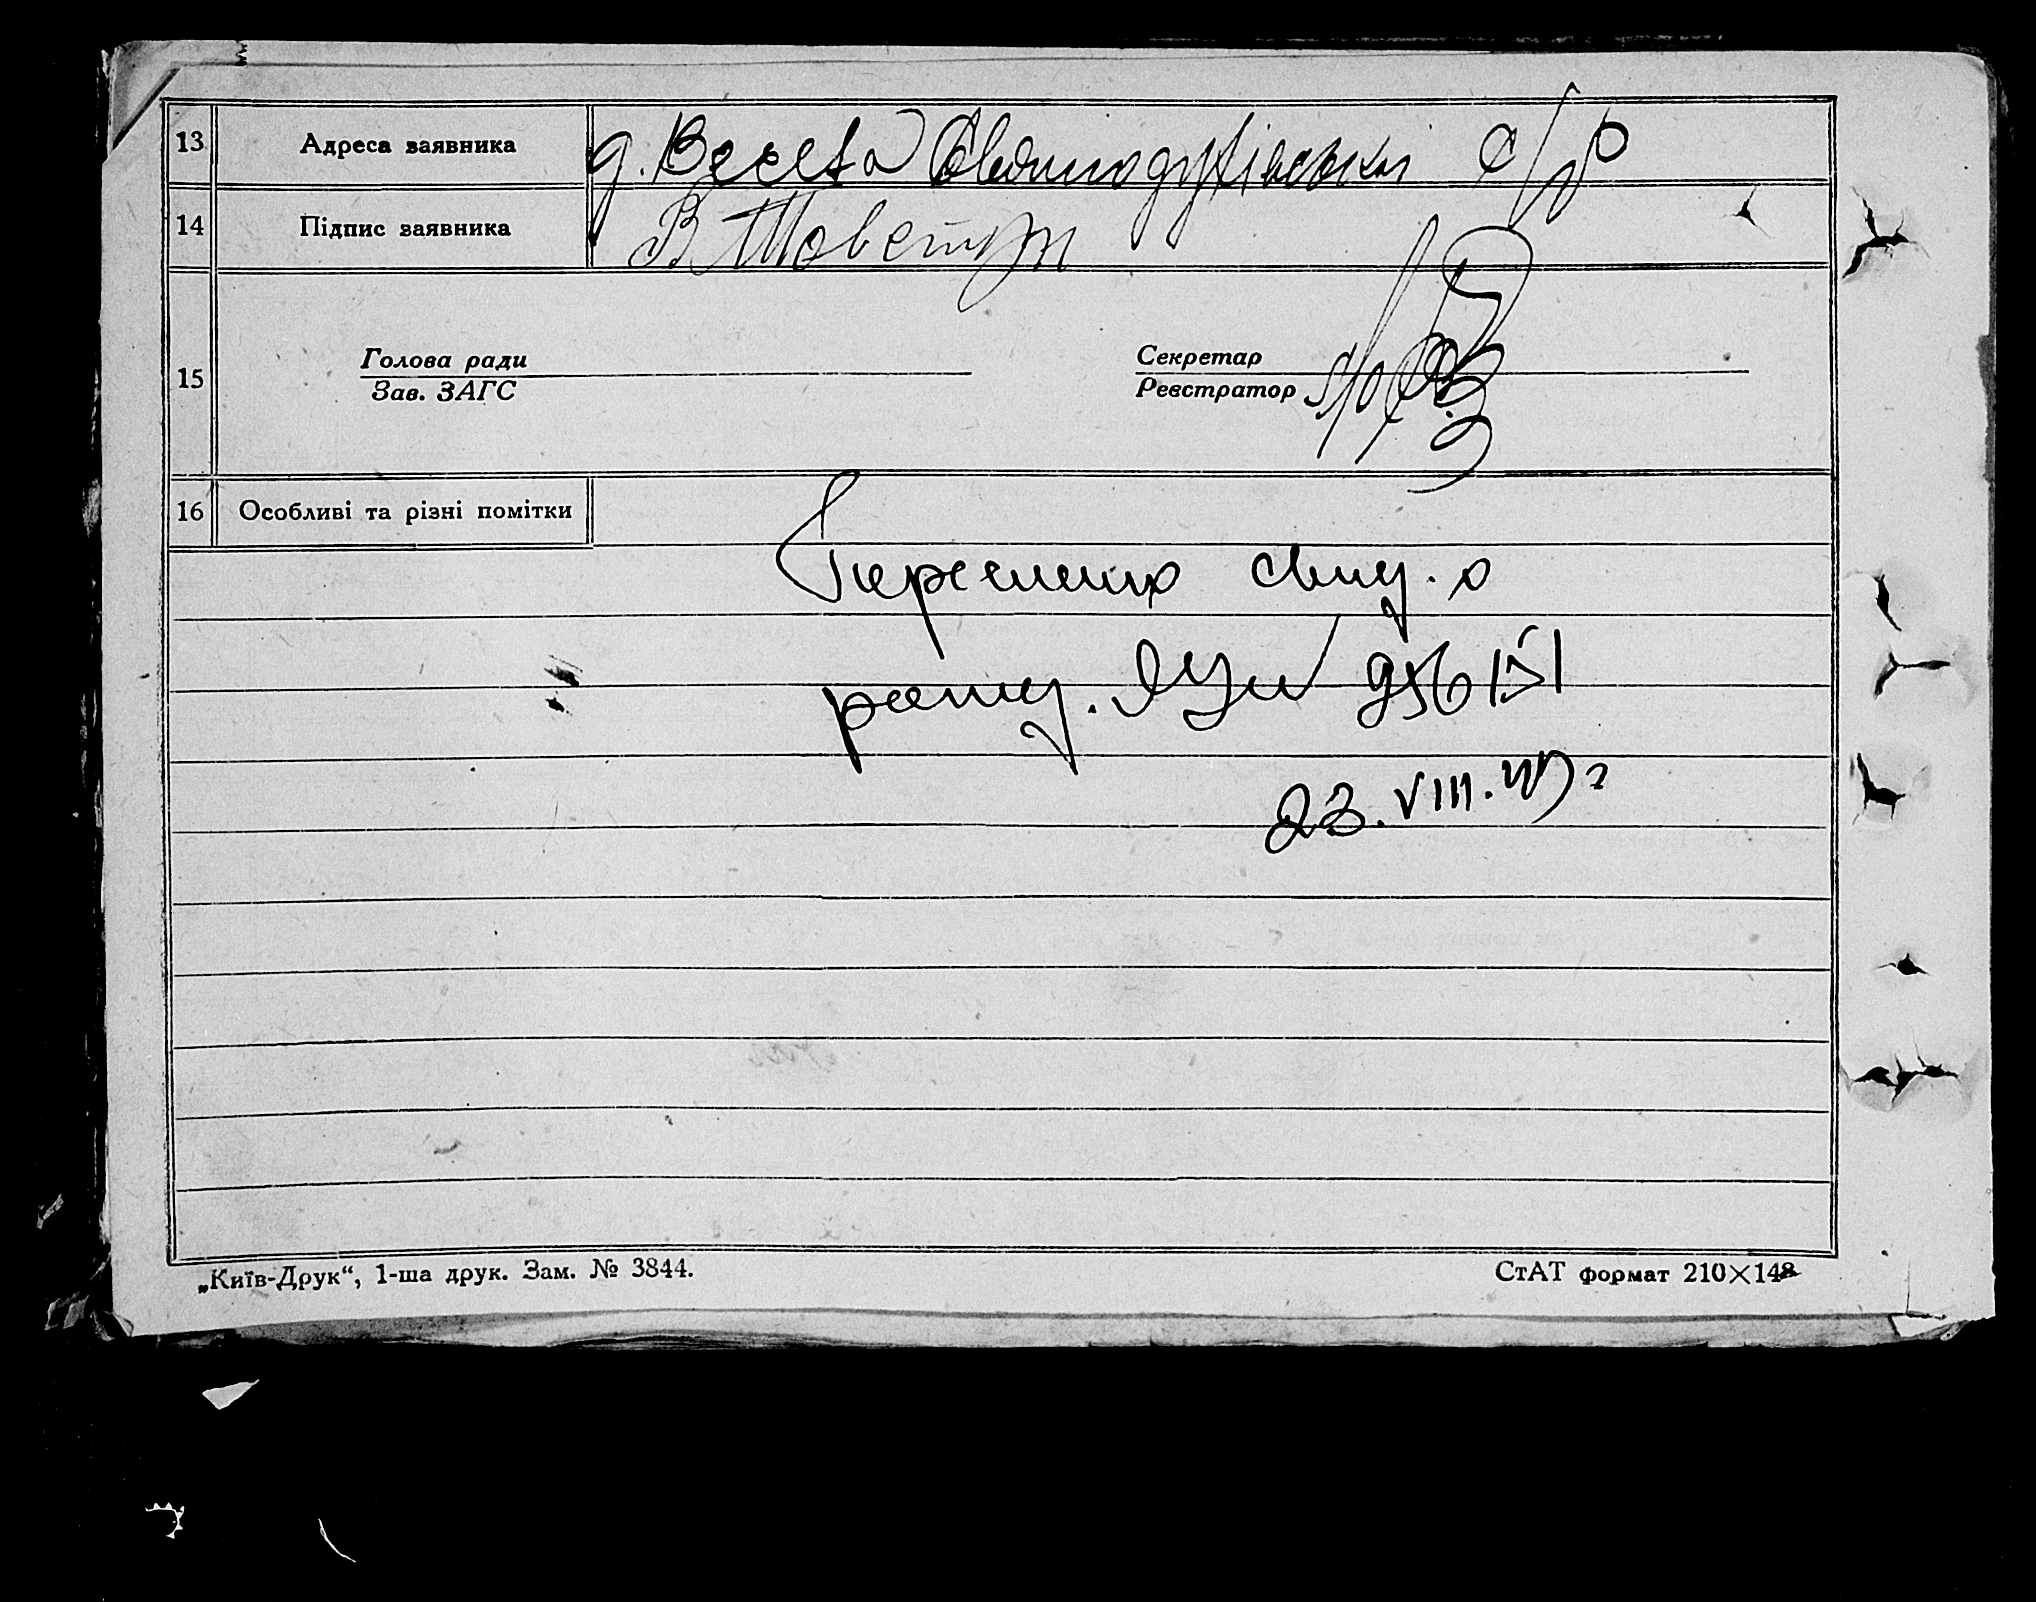 13 Адреса заявника д. Весела Святодухівської с/р
14 Підпис заявника В Товстун
15 Голова ради Секретар
Зав. ЗАГС Реєстратор
16 Особливі та різні помітки
свид. о
рожд. ЯУ №
23. VIII. г
„Київ-Друк“, 1-ша друк. Зам. № 3844. СтАТ формат 210×148